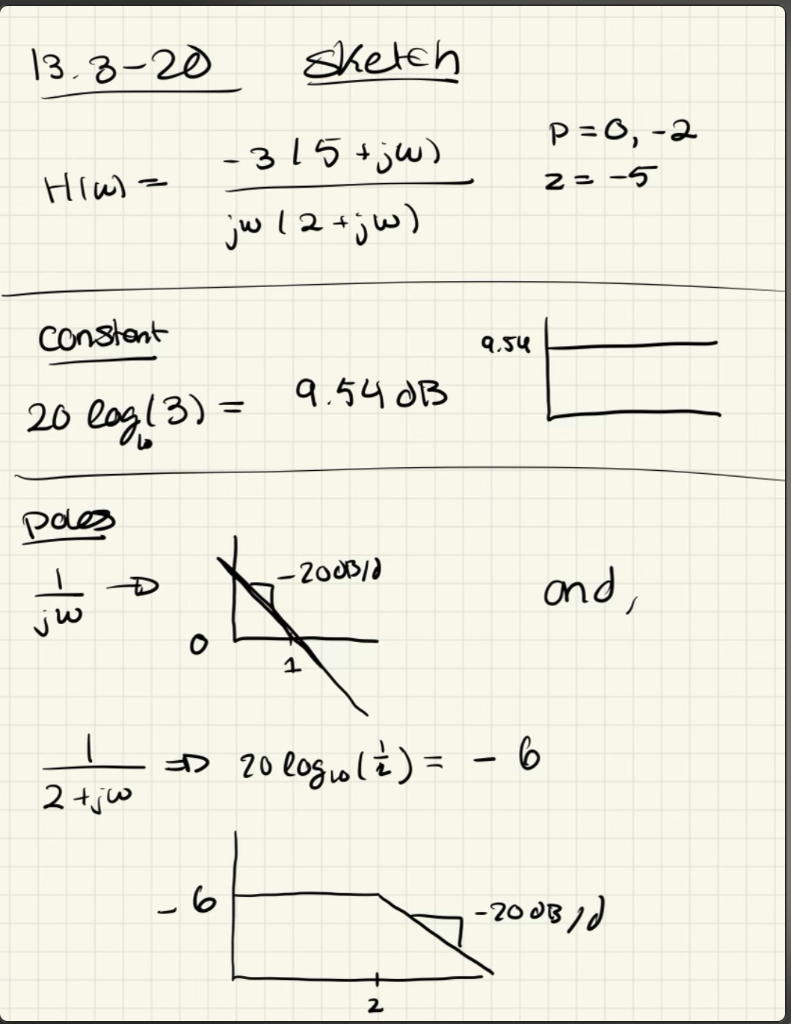 13.3-20 Sketch
H(ω) = -3(5+jω) / jω(2+jω)
P = 0, -2
z = -5
constant
20 log₁₀(3) = 9.54 dB
9.54
poles
1/jω ⇒
-20dB/d
0
1
and,
1/2+jω ⇒ 20 log₁₀(1/2) = -6
-6
-20dB/d
2